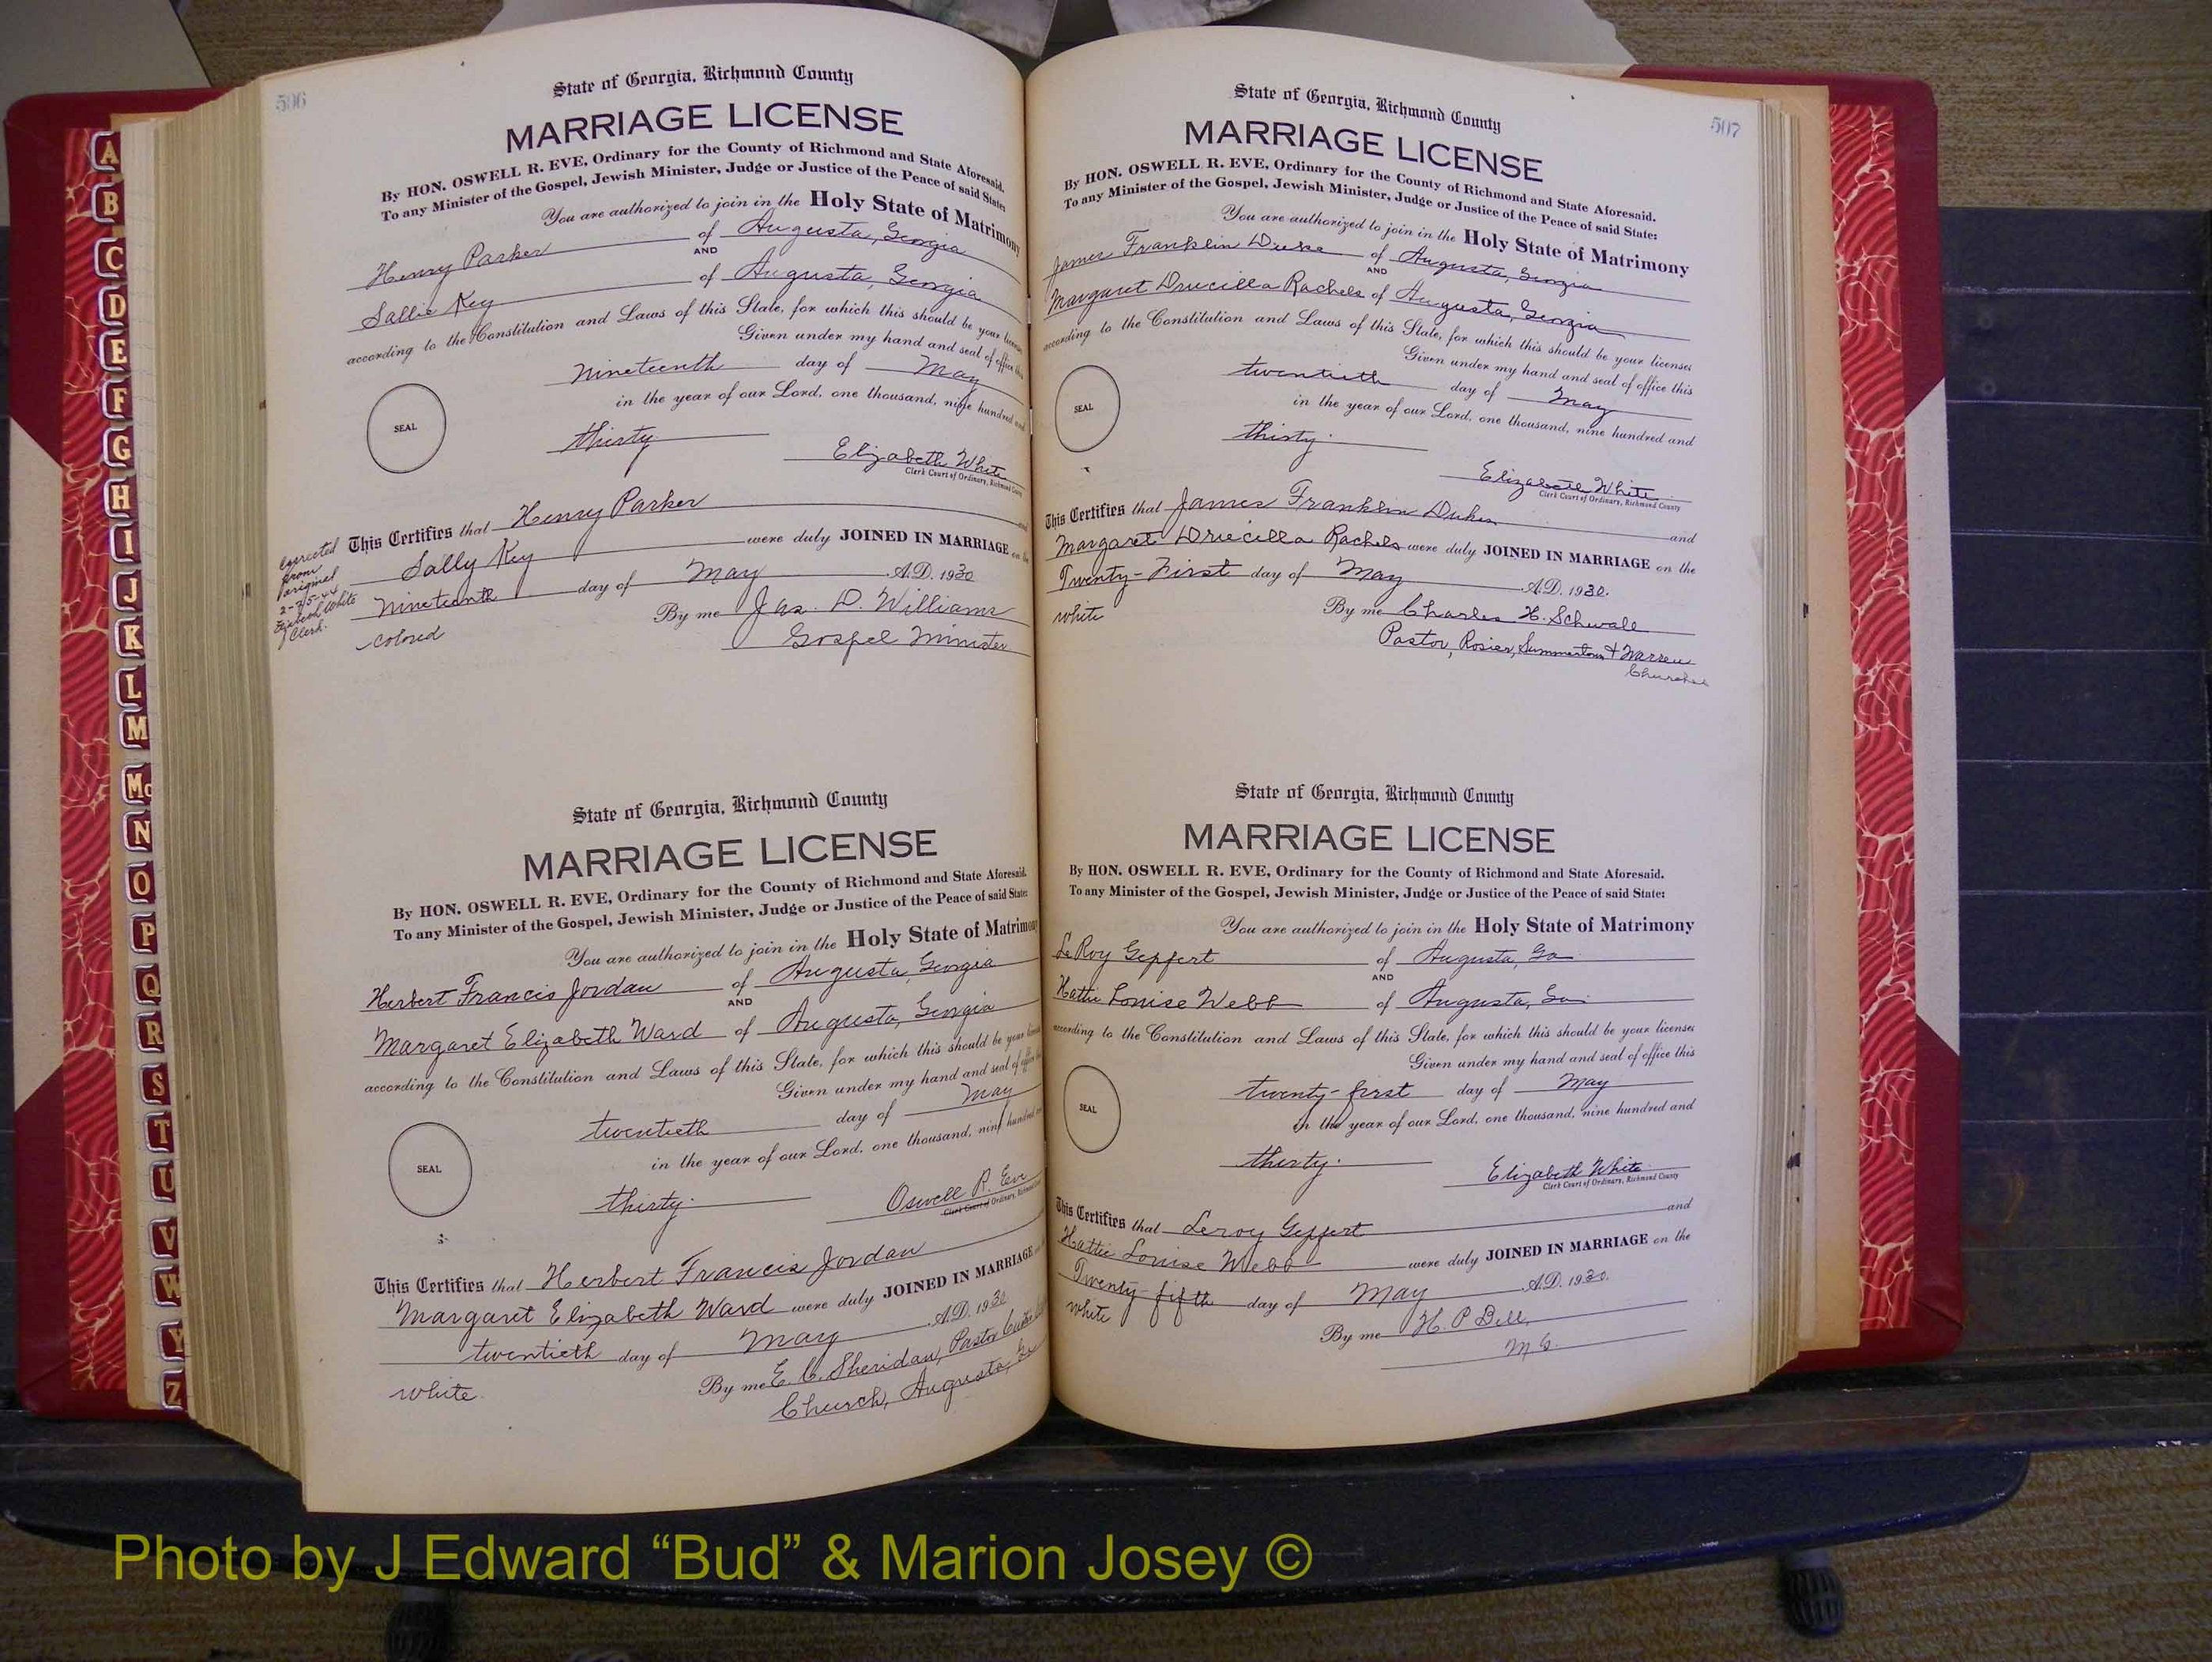 506
State of Georgia, Richmond County
MARRIAGE LICENSE
By HON. OSWELL R. EVE, Ordinary for the County of Richmond and State Aforesaid.
To any Minister of the Gospel, Jewish Minister, Judge or Justice of the Peace of said State:
You are authorized to join in the Holy State of Matrimony
Henry Parker of Augusta, Georgia
AND
Sallie Key of Augusta, Georgia
according to the Constitution and Laws of this State, for which this should be your license
Given under my hand and seal of office this
nineteenth day of May
in the year of our Lord, one thousand, nine hundred and
SEAL
thirty.
Elizabeth White
Clerk Court of Ordinary, Richmond County
This Certifies that Henry Parker and
Sally Key were duly JOINED IN MARRIAGE on the
nineteenth day of May A.D. 1930
By me Jas. D. Williams
Gospel Minister
colored
Corrected
from
original
Elizabeth White
Clerk.
State of Georgia, Richmond County
MARRIAGE LICENSE
By HON. OSWELL R. EVE, Ordinary for the County of Richmond and State Aforesaid.
To any Minister of the Gospel, Jewish Minister, Judge or Justice of the Peace of said State:
You are authorized to join in the Holy State of Matrimony
Herbert Francis Jordan of Augusta, Georgia
AND
Margaret Elizabeth Ward of Augusta, Georgia
according to the Constitution and Laws of this State, for which this should be your
Given under my hand and seal of office
twentieth day of May
in the year of our Lord, one thousand, nine hundred
SEAL
thirty.
Oswell R. Eve
Clerk Court of Ordinary, Richmond
This Certifies that Herbert Francis Jordan
Margaret Elizabeth Ward were duly JOINED IN MARRIAGE
twentieth day of May A.D. 1930
By me E. C. Sheridan, Pastor
Church, Augusta, Ga
white
507
State of Georgia, Richmond County
MARRIAGE LICENSE
By HON. OSWELL R. EVE, Ordinary for the County of Richmond and State Aforesaid.
To any Minister of the Gospel, Jewish Minister, Judge or Justice of the Peace of said State:
You are authorized to join in the Holy State of Matrimony
James Franklin Dukes of Augusta, Georgia
AND
Margaret Drucilla Rachels of Augusta, Georgia
according to the Constitution and Laws of this State, for which this should be your licenses
Given under my hand and seal of office this
twentieth day of May
in the year of our Lord, one thousand, nine hundred and
SEAL
thirty.
Elizabeth White
Clerk Court of Ordinary, Richmond County
This Certifies that James Franklin Dukes and
Margaret Drucilla Rachels were duly JOINED IN MARRIAGE on the
Twenty-First day of May A.D. 1930.
white
By me Charles H. Schwall
Pastor, Rosier, Summertown & Warren
Churches
State of Georgia, Richmond County
MARRIAGE LICENSE
By HON. OSWELL R. EVE, Ordinary for the County of Richmond and State Aforesaid.
To any Minister of the Gospel, Jewish Minister, Judge or Justice of the Peace of said State:
You are authorized to join in the Holy State of Matrimony
LeRoy Geppert of Augusta, Ga
AND
Hattie Louise Webb of Augusta, Ga
according to the Constitution and Laws of this State, for which this should be your licenses
Given under my hand and seal of office this
twenty-first day of May
in the year of our Lord, one thousand, nine hundred and
SEAL
thirty.
Elizabeth White
Clerk Court of Ordinary, Richmond County
This Certifies that Leroy Geppert and
Hattie Louise Webb were duly JOINED IN MARRIAGE on the
Twenty-fifth day of May A.D. 1930.
white
By me H. P. Bell,
M.G.
A
B
C
D
E
F
G
H
I
J
K
L
M
Mc
N
O
P
Q
R
S
T
U
V
W
Y
Z
Photo by J Edward “Bud” & Marion Josey ©